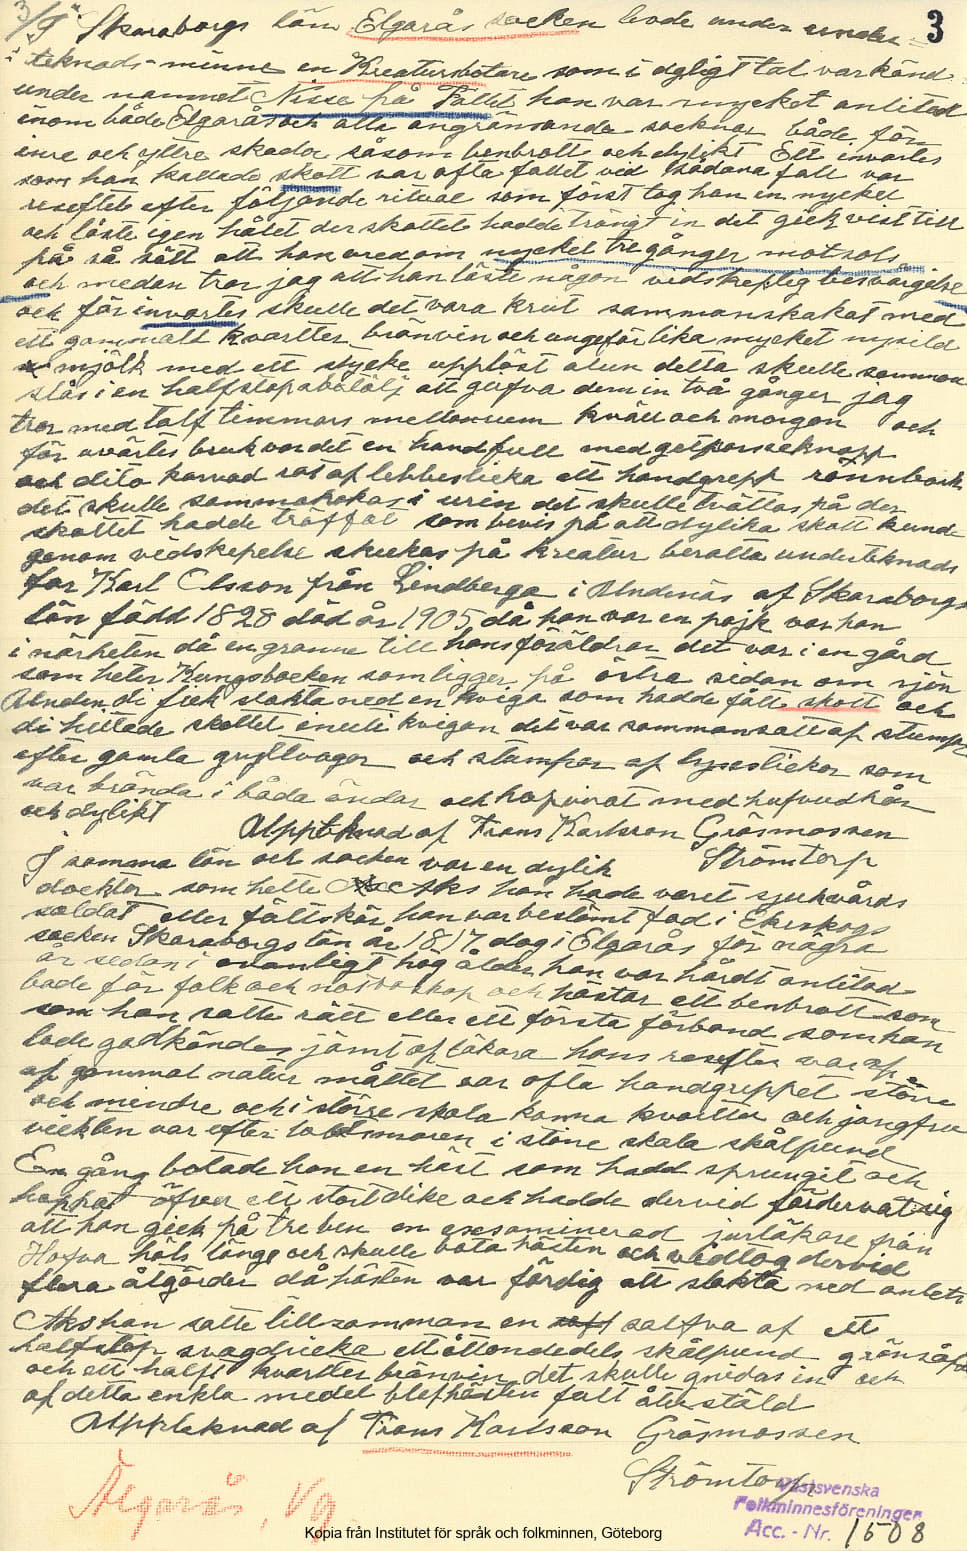 3
I Skaraborgs län Elgarås socken levde under under=
tecknads minne en Kreatursbotare som i dgligt tal var känd
under namnet Nisse från Fallet han var mycket anlitad
inom både Elgarås och alla angränsande socknar både för
inre och yttre skador såsom benbrott och dylikt Ett invärtes
som han kallade skott var ofta fallet ved sådana fall var
reseftet efter följande ritual som först tog han en nyckel
och låste igen hålet der skottet hadde trängt in det gick vist till
på så sätt att han vred om nyckel tre gånger motsols
och medan tror jag att han läste någon vidskeplig besvärgelse
och för invärtes skulle det vara krut sammanskakat med
ett gammalt kvartter bränvin och ungefär lika mycket nysild
mjölk med ett stycke upplöst alun detta skulle samman
slås i en halfstopsbotölj att gifva dem in två gånger jag
tror med tolf timmars mellanrum kväll och morgon och
för uvärtes bruk var det en handfull med getporsseknopp
och dito karvad rot af lebbesticka ett handgrepp rönnbark
det skulle sammakokas i urin det skulle tvättas på der
skottet hadde träffat som bevis på att dylika skott kunde
genom vidskepelse skickas på kreatur beratta undertecknads
far Karl Olsson från Lindberga i Undenäs af Skaraborgs
län född 1828 död år 1905 då han var en pojk var han
i närheten då en granne till hans föräldrar det var i en gård
som heter Kungsbacken som ligger på östra sidan om sjön
Unden di fick slakta ned en kviga som hadde fått skott och
di hittade skottet inuti kvigan det var sammansatt af stumpar
efter gamla gryttvagor och stumpar af lysestickor som
var brända i båda ändar och hopvirat med hufvudhår
och dylikt
Upptcknad af Frans Karlsson Gräsmossen
Strömtorp
I samma län och socken var en dylik
docktor som hette Aks han hade varet sjukvårds
soldat eller fältskär han var bestämt fød i Ekeskogs
socken Skaraborgs län år 1817 dog i Elgarås för några
år sedan i ovanligt hög ålder han var hårdt anlitad
både för folk och nötboskap och hästar ett benbrott som
som han satte rätt eller ett första förband som han
lade godkändes jämt af läkara hans resefter var af
af gammal natur måttet var ofta handgreppet större
och mindre och i större skala kanna kvartter och jungfru
vickten var efter lod maren i större skala skålpund
En gång botade han en häst som hadd sprungit och
hoppat öfver ett stort dike och hadde dervid fördervat sig
att han gick på tre ben en exsaminerad jurläkare från
Hofva höls länge och skulle bota hästen och vidtog dervid
flera åtgörder då hästen var färdig att slakta ned anlets
Aks han satte till samman en salfva af ett
halfstop svagdricka ett åttondedels skålpund grönsåpa
och ett halft kvartter bränvin det skulle gnidas in och
af detta enkla medel blef hästen fult återstäld
Upptecknad af Frans Karlsson Gräsmossen
Strömtorp
Älgarås, Vg.
Västsvenska
Folkminnesföreningen
Acc. - Nr. 1508
Kopia från Institutet för språk och folkminnen, Göteborg